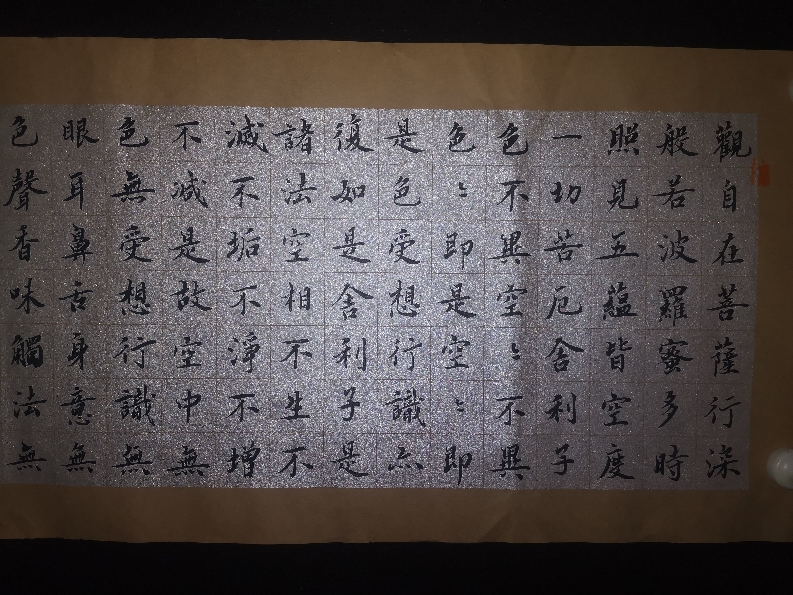 觀自在菩薩行深
般若波羅蜜多時
照見五蘊皆空度
一切苦厄舍利子
色不異空〻不異
色〻即是空〻即
是色受想行識亦
復如是舍利子是
諸法空相不生不
滅不垢不淨不增
不減是故空中無
色無受想行識無
眼耳鼻舌身意無
色聲香味觸法無